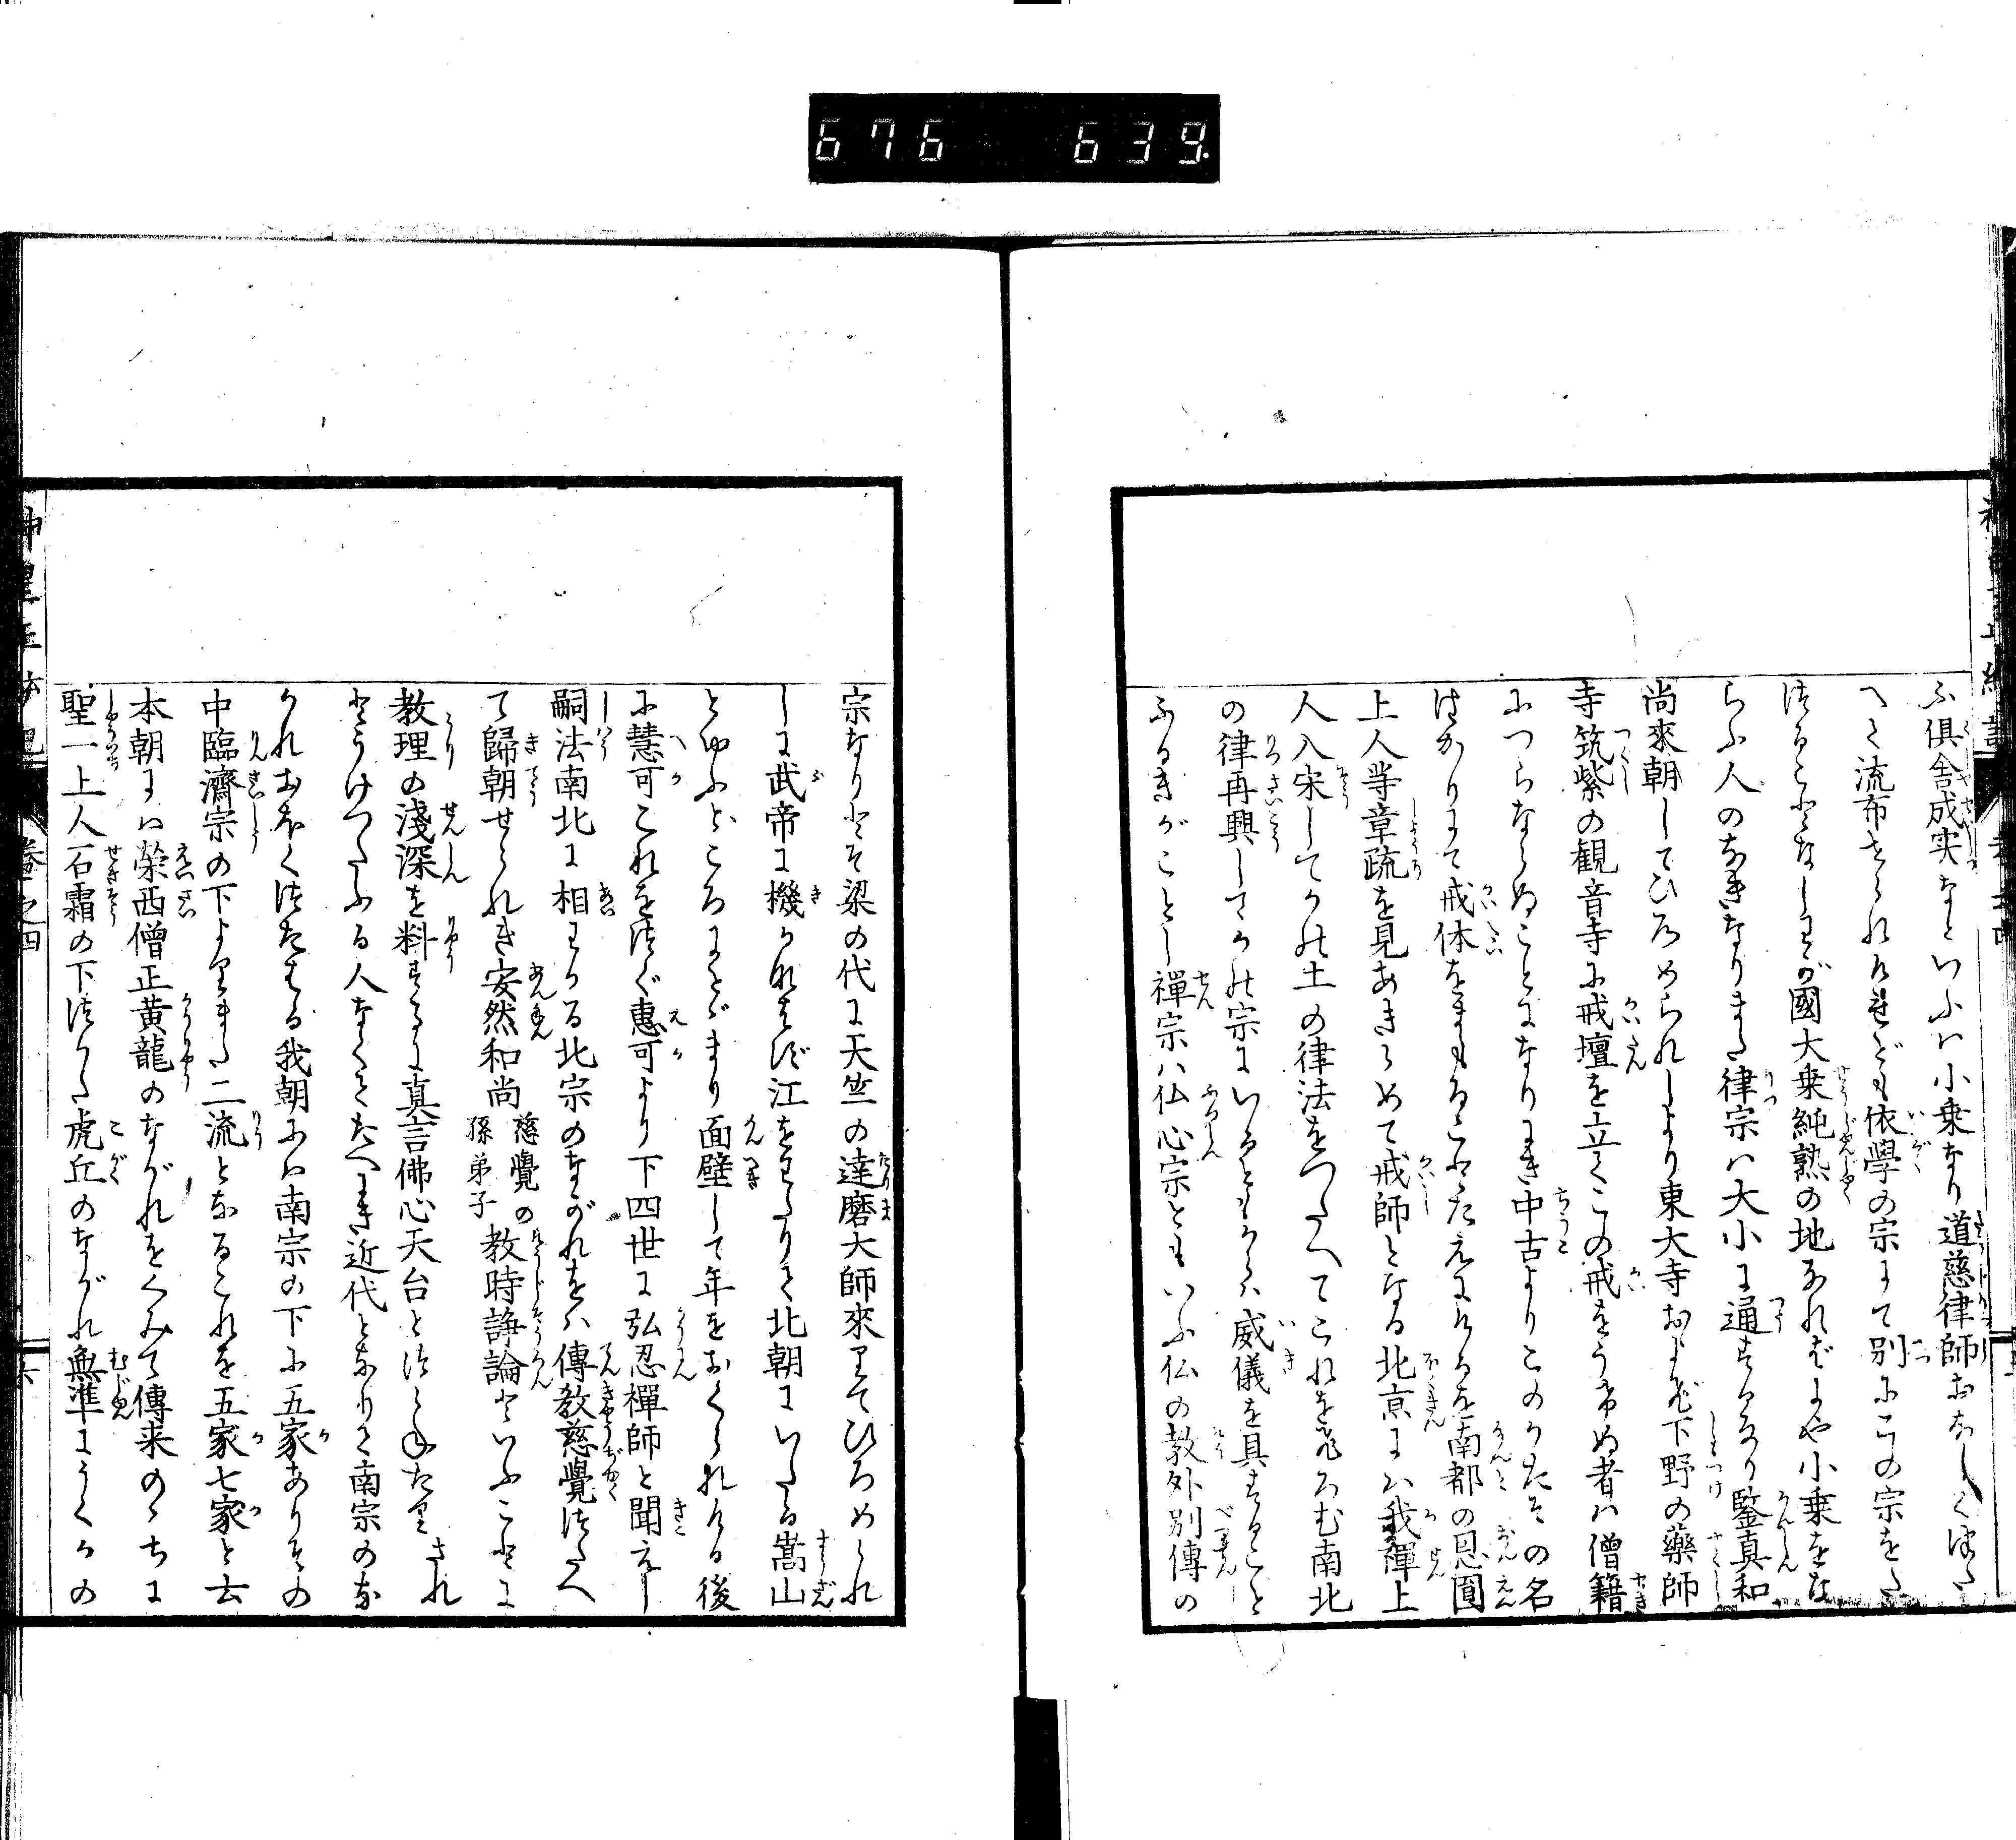 676 639.
ふ倶舎成実なといふハ小乗なり道慈律師おなしく伝た
へて流布せられけれども依學の宗にて別にこの宗をた
つることなし我國大乗純熟の地なればにや小乗をな
らふ人のなきなりまた律宗ハ大小に通するなり鑒真和
尚來朝してひろめられしより東大寺および下野の藥師
寺筑紫の観音寺に戒壇を立てこの戒をうけぬ者ハ僧籍
につらならぬことになりにき中古よりこのかたその名
はかりにて戒体をまもることたえにけるを南都の思圓
上人等章疏を見あきらめて戒師となる北京にハ我禅上
人入宋してかの土の律法をつたへてこれをひろむ南北
の律再興してかの宗にいるともからハ威儀を具すること
ふるきがことし禪宗ハ仏心宗ともいふ仏の教外別傳の
宗なりとそ梁の代に天竺の達磨大師來りてひろめられ
しに武帝に機かなはず江をわたりて北朝にいたる嵩山
とゆふところにとゞまり面壁して年をおくられける後
に慧可これをつぐ惠可より下四世に弘忍禪師と聞えし
嗣法南北に相わかる北宗のながれをハ傳教慈覺つたへ
て歸朝せられき安然和尚慈覺の孫弟子教時諍論といふことに
教理の淺深を料するに真言佛心天台とつらねたりされ
とうけつたふる人なくてたへにき近代となりて南宗のな
かれおほくつたはる我朝にハ南宗の下に五家ありその
中臨濟宗の下よりまた二流となるこれを五家七家と云
本朝にハ榮西僧正黄龍のながれをくみて傳来のゝちに
聖一上人石霜の下つかた虎丘のながれ無準にうくかの
神皇正統記 巻之四 六